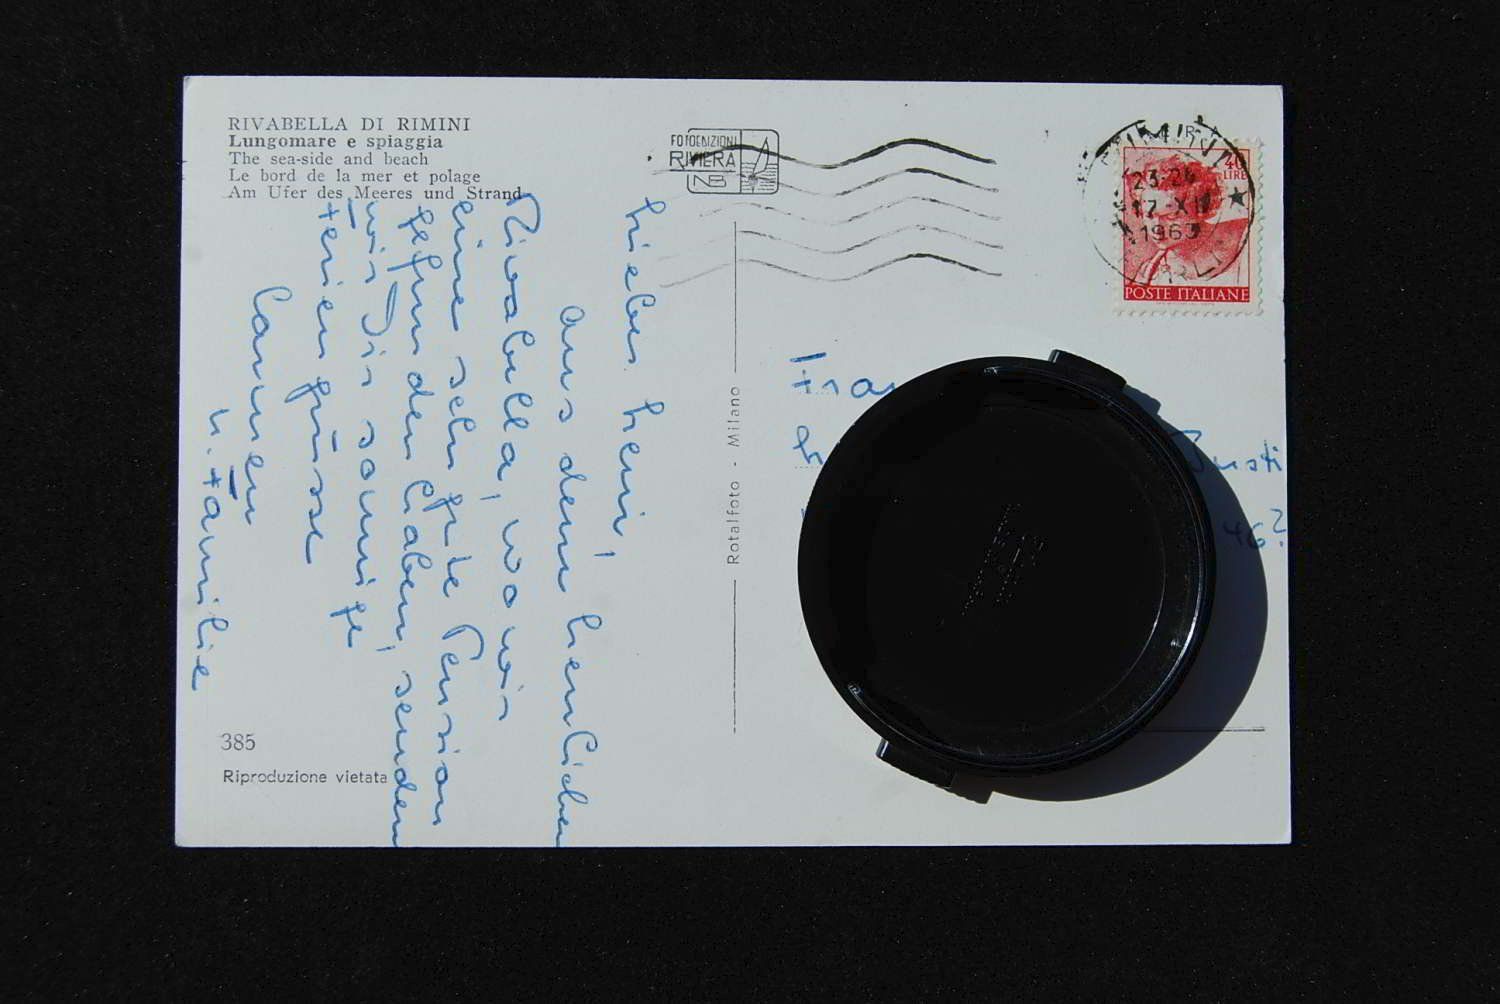 RIVABELLA DI RIMINI
Lungomare e spiaggia
The sea-side and beach
Le bord de la mer et polage
Am Ufer des Meeres und Strand
FOTOEDIZIONI
RIVIERA
NB
40
LIRE
23-24
1963
POSTE ITALIANE
aus dem herrlichen
Rivabella, wo wir
eine sehr gute Pension
gefunden haben, senden
wir Dir sonnige
Feriengrüsse
Carmen
u. Familie
Rotalfoto - Milano
46?
385
Riproduzione vietata